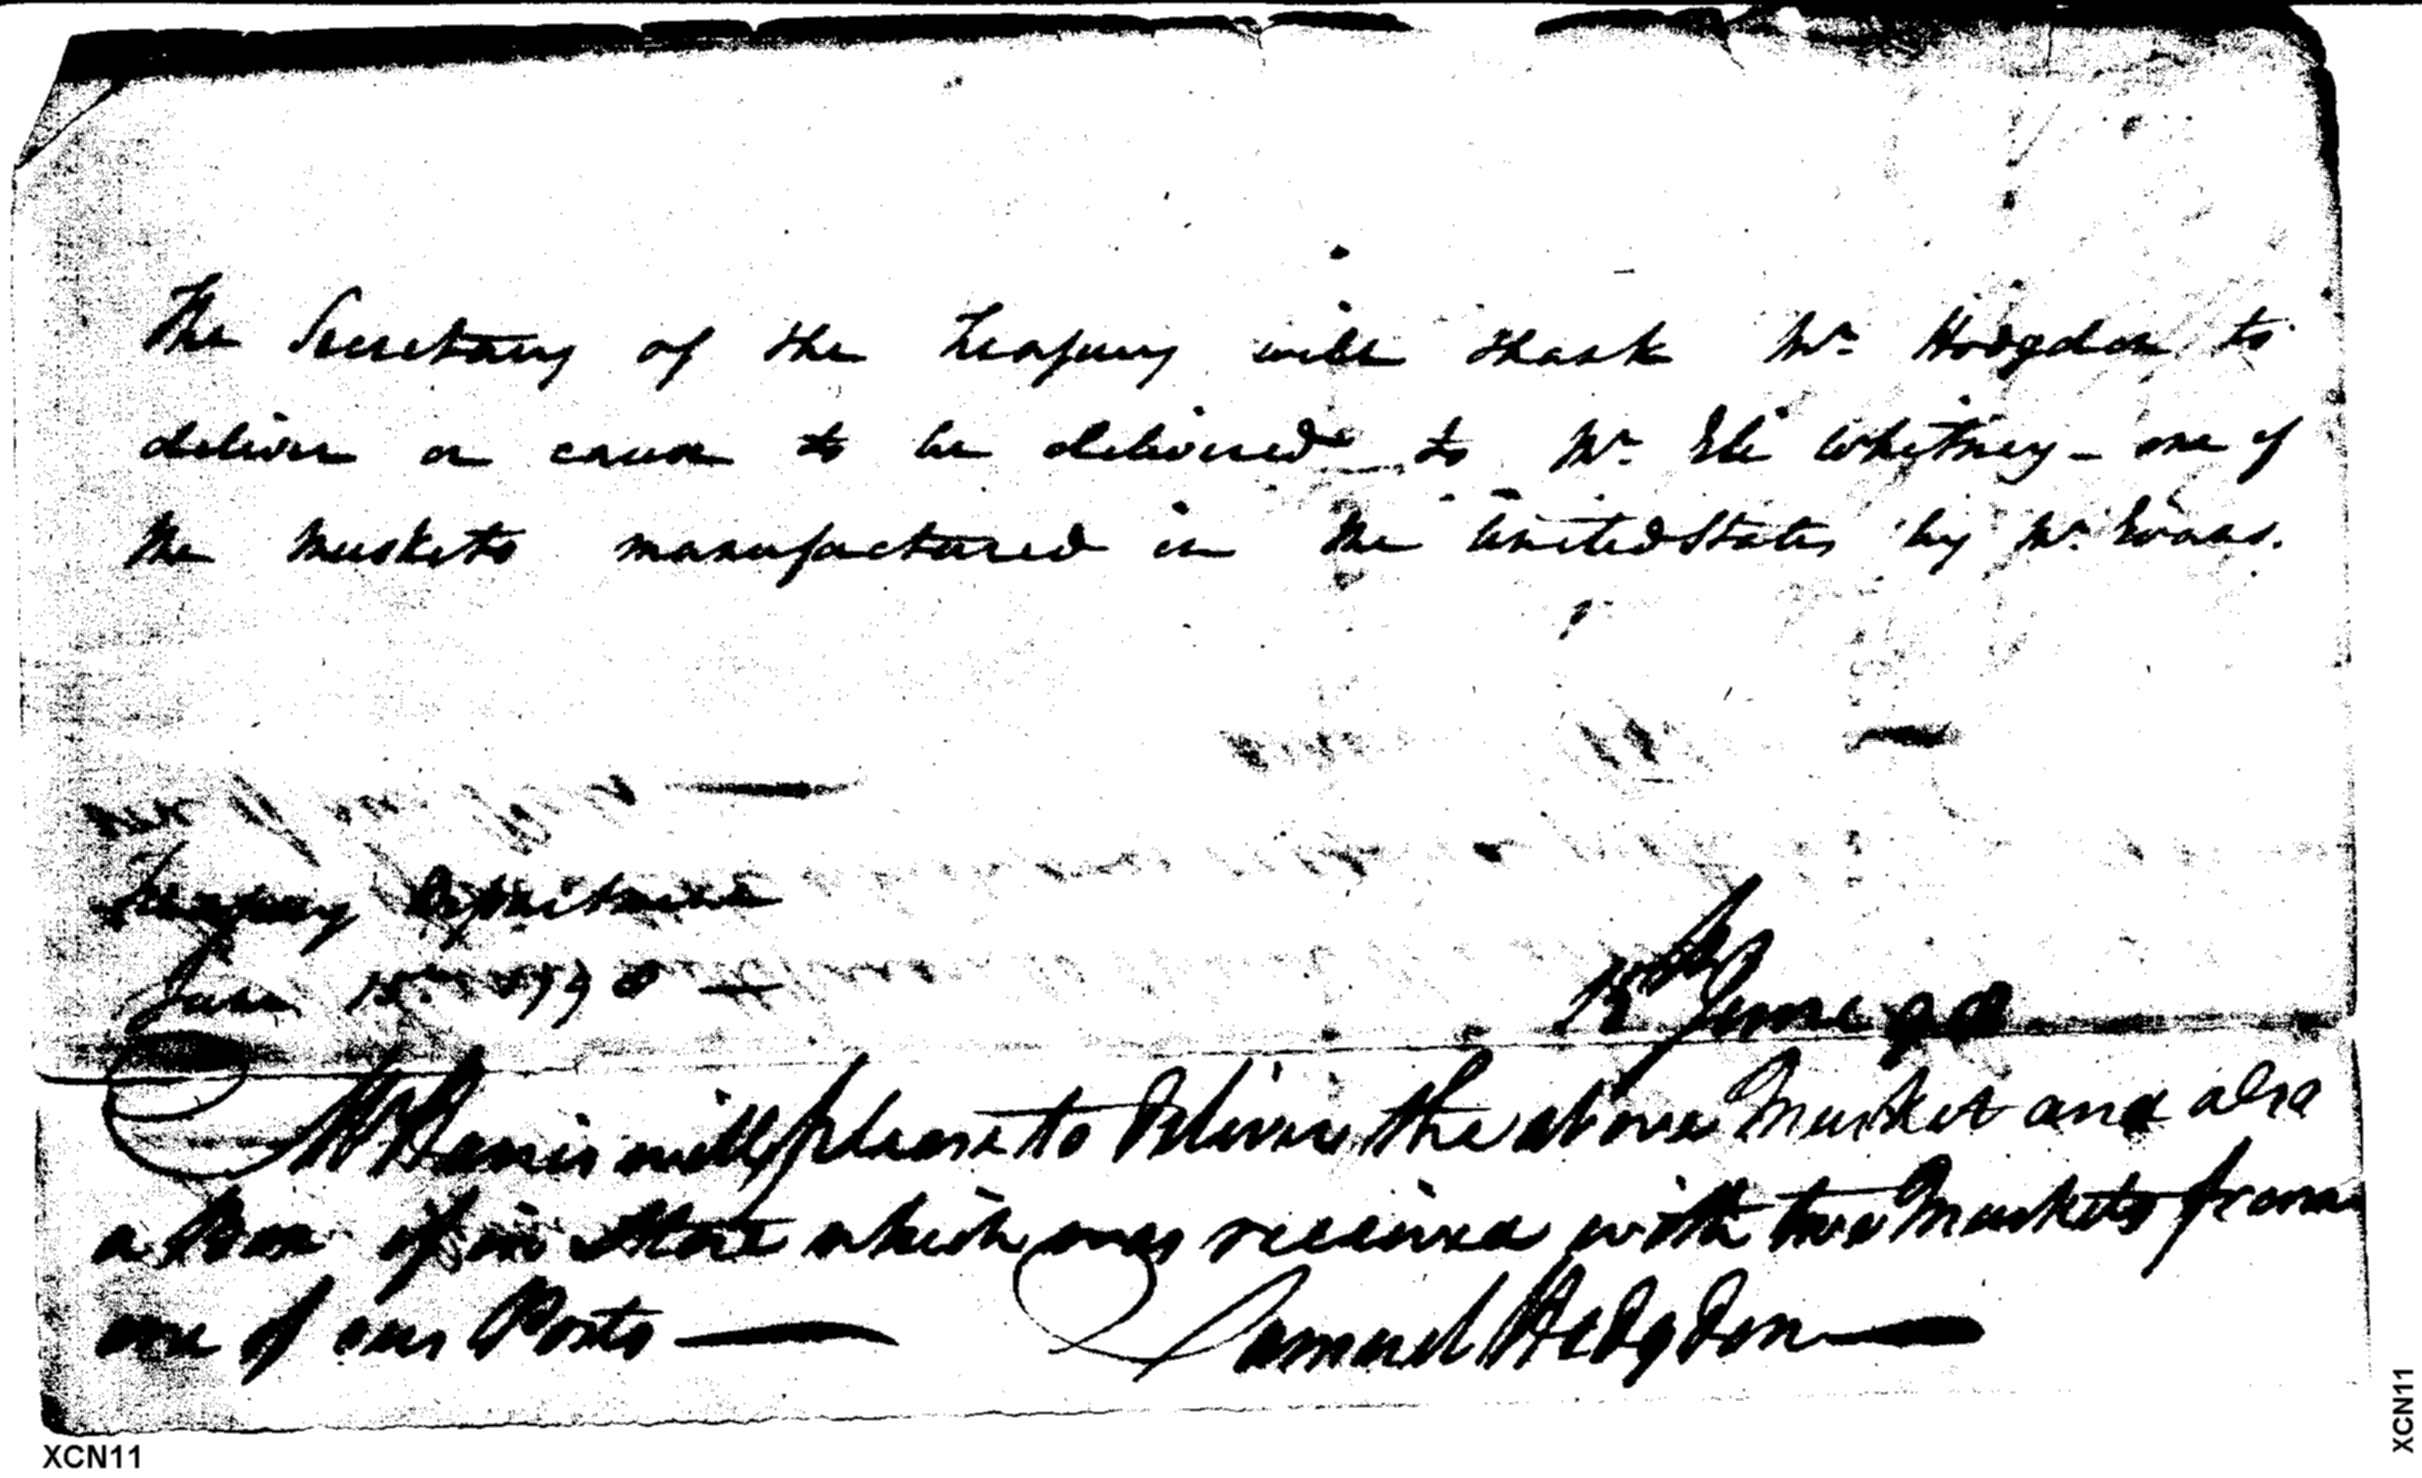 The Secretary of the Treasury will thank Mr. Hodgdon to
deliver or cause to be delivered to Mr. Eli Whitney - one of
the muskets manufactured in the United States by Mr. Evans.
Treasury Department
June 15th 1798
15th June 98
Mr Harris will please to Deliver the above Musket and also
a Box if in Store which was received with two Muskets from
one of our Posts
Samuel Hodgdon
XCN11
XCN11